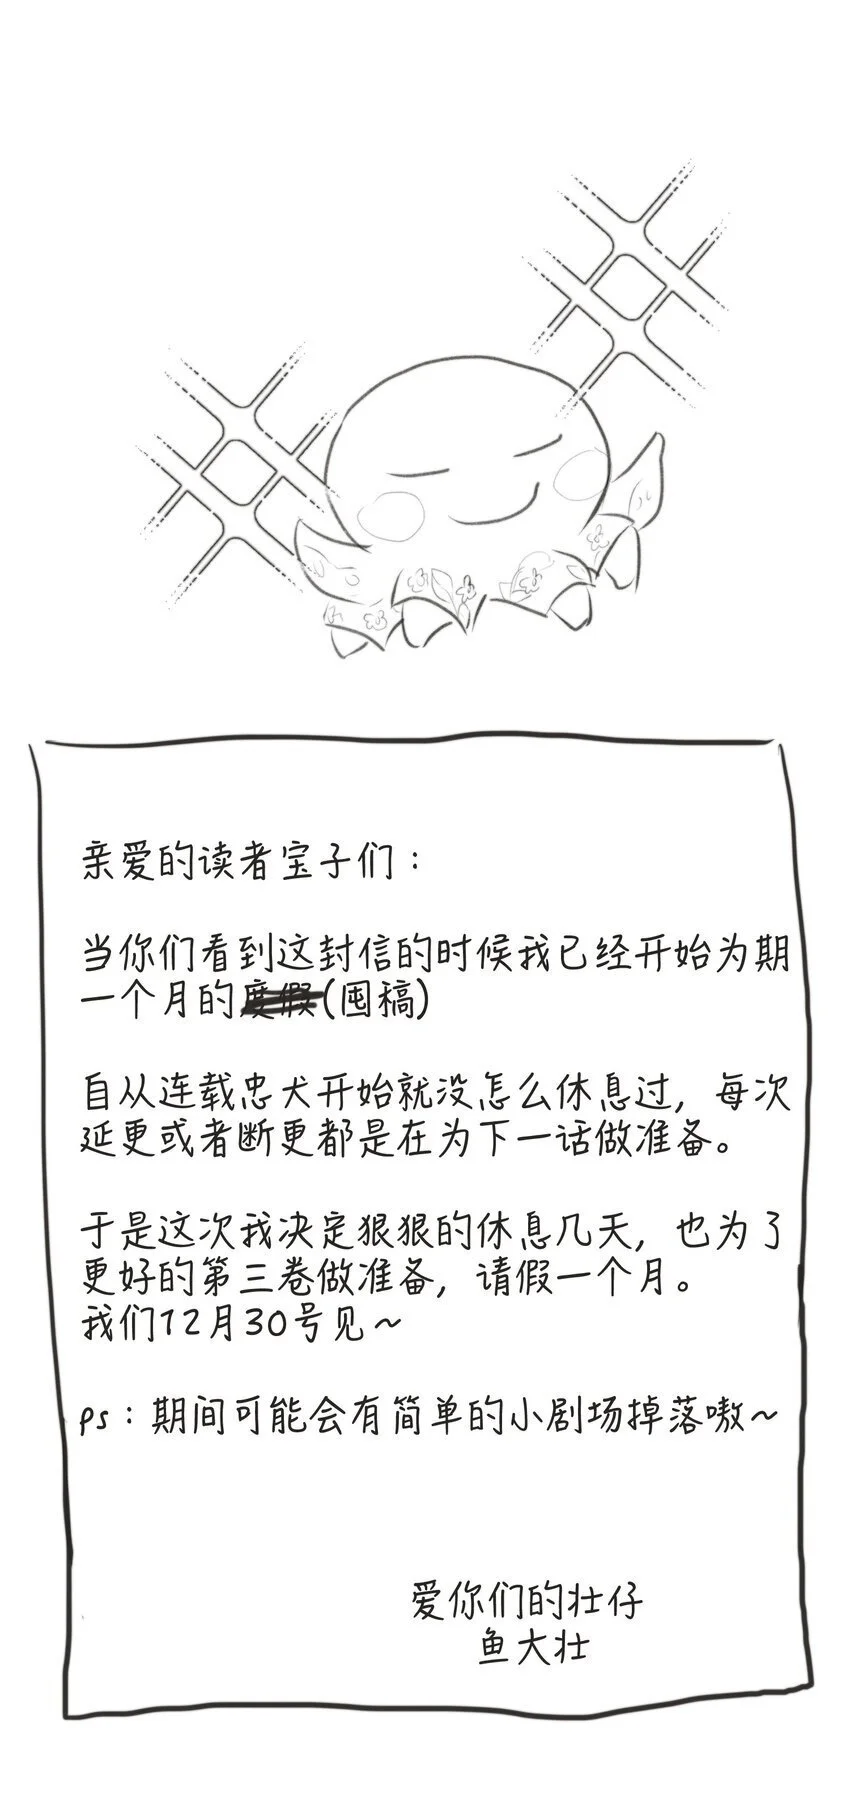 亲爱的读者宝子们：
当你们看到这封信的时候我已经开始为期
一个月的度假(囤稿)
自从连载忠犬开始就没怎么休息过，每次
延更或者断更都是在为下一话做准备。
于是这次我决定狠狠的休息几天，也为了
更好的第三卷做准备，请假一个月。
我们12月30号见~
ps：期间可能会有简单的小剧场掉落嗷~
爱你们的壮仔
鱼大壮